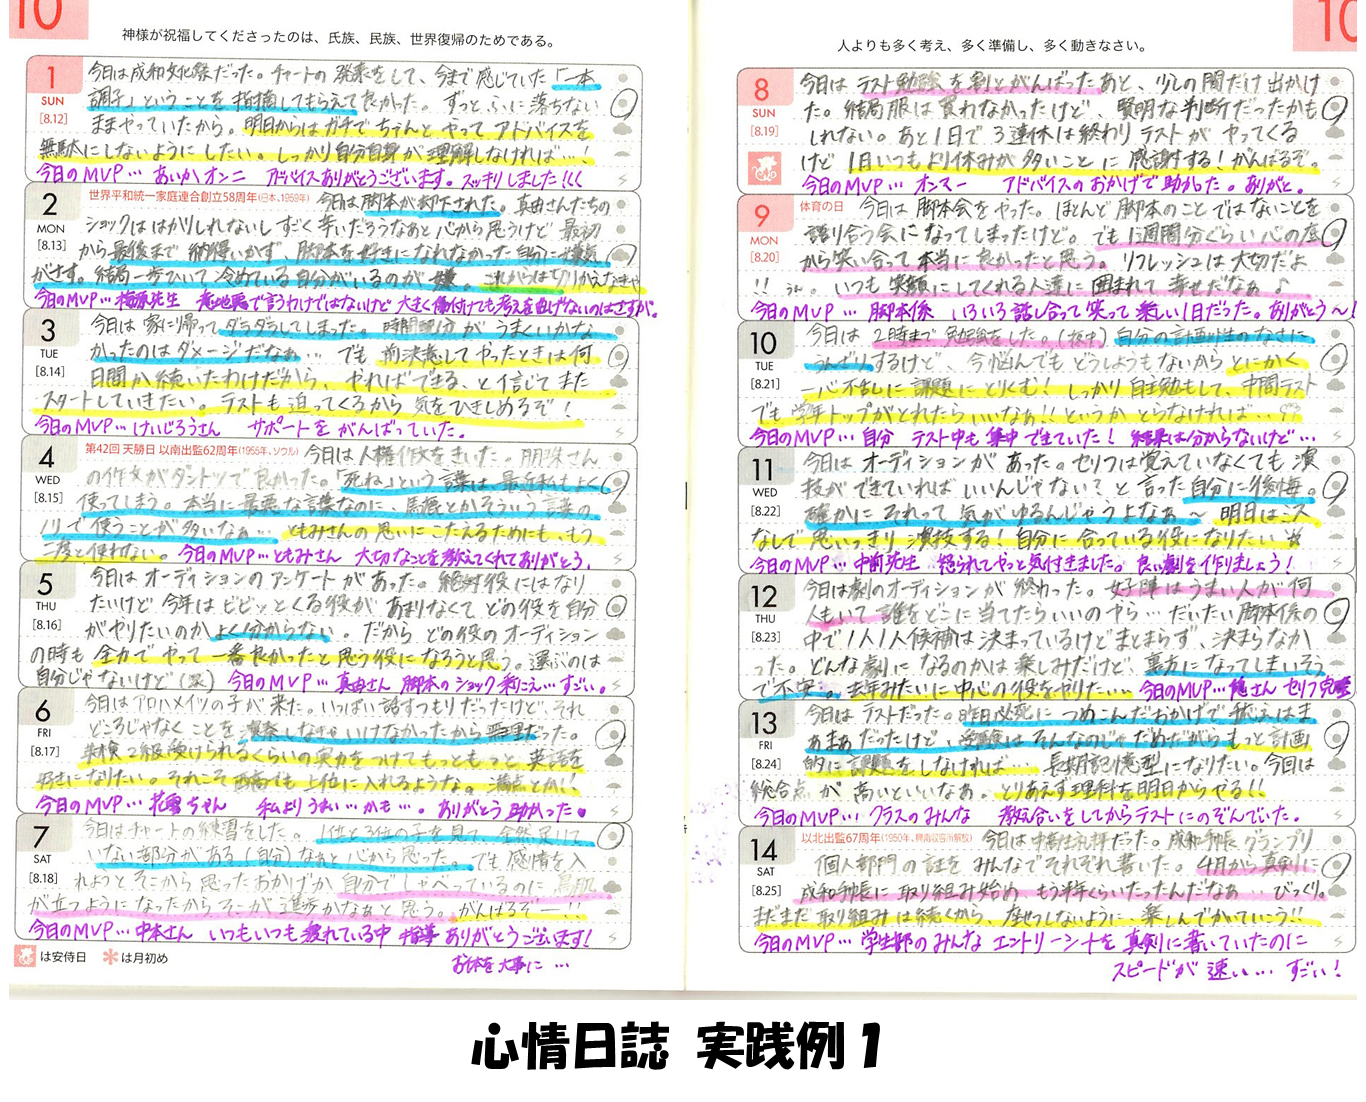 10
神様が祝福してくださったのは、氏族、民族、世界復帰のためである。
1
SUN
[8.12]
今日は成和文化祭だった。チャートの発表をして、今まで感じていた「一本
調子」ということを指摘してもらえて良かった。ずっとふに落ちない
ままやっていたから。明日からはガチでちゃんとやってアドバイスを
無駄にしないようにしたい。しっかり自分自身が理解しなければ…!
今日のMVP… あいかオンニ アドバイスありがとうございます。スッキリしました!!!
2
MON
[8.13]
世界平和統一家庭連合創立58周年(日本、1959年)
今日は脚本が却下された。真由さんたちの
ショックははかりしれないしすごく辛いだろうなあと心から思うけど 最初
から最後まで 納得いかず、脚本を好きになれなかった自分に嫌気
がさす。結局一歩ひいて冷めている自分がいるのが嫌 これからは切りかえなきゃ
今日のMVP… 梅原先生 意地悪で言うわけではないけど 大きく傷付けても考えを曲げないのはさすが。
3
TUE
[8.14]
今日は 家に帰ってダラダラしてしまった。時間配分がうまくいかな
かったのはダメージだなぁ… でも 前決意してやったときは何
日間か続いたわけだから、やればできる、と信じて また
スタートしていきたい。テストも迫ってくるから 気をひきしめるぞ!
今日のMVP… けいじろうさん サポートをがんばっていた。
4
WED
[8.15]
第42回 天勝日 以南出監62周年(1955年、ソウル)
今日は人権作文をきいた。朋珠さん
の作文がダントツで良かった。「死ね」という言葉は、最近私もよく
使ってしまう。本当に最悪な言葉なのに、馬鹿とかそういう言葉の
ノリで使うことが多いなぁ… ともみさんの思いにこたえるためにも、もう
二度と使わない。 今日のMVP…ともみさん 大切なことを教えてくれてありがとう。
5
THU
[8.16]
今日はオーディションのアンケートがあった。絶対役にはなり
たいけど 今年はビビッとくる役があまりなくて どの役を自分
がやりたいのかよく分からない。だから どの役のオーディション
の時も 全力でやって一番良かったと思う役になろうと思う。選ぶのは
自分じゃないけど(涙) 今日のMVP… 真由さん 脚本のショック乗りこえ…すごい。
6
FRI
[8.17]
今日はアロハメイツの子が来た。いっぱい話すつもりだったけど、それ
どころじゃなくことを しなきゃいけなかったから だった。
英検2級受けられるくらいの実力をつけてもっともっと、英語を
好きになりたい。それこそ でも上位に入れるような。満点とか!!
今日のMVP… 花雪ちゃん 私よりうまい…かも…。ありがとう 助かった♥
7
SAT
[8.18]
今日はチャートの練習をした。1位と3位の子を見て、全然足りて
いない部分がある(自分)なぁと心から思った。でも感情を入
れようと、そこから思ったおかげか 自分でしゃべっているのに 鳥肌
が立つようになったからそこが進歩かなぁと思う。がんばるぞー!!
今日のMVP… 中本さん いつもいつも疲れている中 指導 ありがとうございます!
お体を大事に…
は安侍日 ✻は月初め
10
人よりも多く考え、多く準備し、多く動きなさい。
8
SUN
[8.19]
今日は テスト勉強を割とがんばったあと、少しの間だけ出かけ
た。結局服は買れなかったけど、賢明な判断だったかも
しれない。あと1日で3連休は終わり テストがやってくる
けど 1日いつもより休みが多いことに感謝する!がんばるぞ。
今日のMVP… オンマー アドバイスのおかげで助かった。ありがと。
9
MON
[8.20]
体育の日
今日は脚本会をやった。ほとんど脚本のことではないことを
語り合う会になってしまったけど。でも1週間分ぐらい心の底
から笑い合って本当に良かったと思う。リフレッシュは大切だよ
!! うん。いつも笑顔にしてくれる人達に囲まれて幸せだなぁ♪
今日のMVP… 脚本係 いろいろ話し合って笑って楽しい1日だった。ありがとう~!
10
TUE
[8.21]
今日は 2時まで勉強をした。(夜中) 自分の計画性のなさに
うんざりするけど、今悩んでもどうしようもないから とにかく
一心不乱に課題にとりくむ! しっかり自主勉もして、中間テスト
でも学年トップがとれたらいいなぁ!!というかとらなければ…
今日のMVP… 自分 テスト中も集中できていた! 結果は分からないけど…
11
WED
[8.22]
今日はオーディションがあった。セリフは覚えていなくても演
技ができていればいいんじゃない?と言った自分に後悔。
確かにそれって気がゆるんじゃうよなぁ~ 明日はミス
なしで思いっきり演技する!自分に合っている役になりたい☆
今日のMVP… 中前先生 怒られてやっと気付きました。良い劇を作りましょう!
12
THU
[8.23]
今日は劇のオーディションが終わった。女子陣はうまい人が何
人もいて誰をどこに当てたらいいのやら…だいたい脚本係の
中で1人1人候補は決まっているけどまとまらず、決まらなか
った。どんな劇になるのかは楽しみだけど、裏方になってしまいそう
で不安。去年みたいに中心の役をやりたい… 今日のMVP… さん セリフ完璧
13
FRI
[8.24]
今日はテストだった。昨日必死につめこんだおかげで はま
ぁまぁだったけど、受験はそんなのじゃだめだからもっと計画
的に課題をしなければ… 長期記憶型になりたい。今日は
総合点が高いといいなぁ。とりあえず理科を明日からやる!!
今日のMVP… クラスのみんな 教え合いをしてからテストにのぞんでいた。
14
SAT
[8.25]
以北出監67周年(1950年、興南収容所解放)
今日は中高生礼拝だった。成和手帳グランプリ
個人部門の証をみんなでそれぞれ書いた。4月から真剣に
成和手帳に取り組み始め もう半年くらいたったんだなぁ…びっくり。
まだまだ取り組みは続くから、ざせつしないように、楽しんでかいていこう!!
今日のMVP… 学生部のみんな エントリーシートを真剣に書いていたのに
スピードが速い… すごい!
心情日誌 実践例1